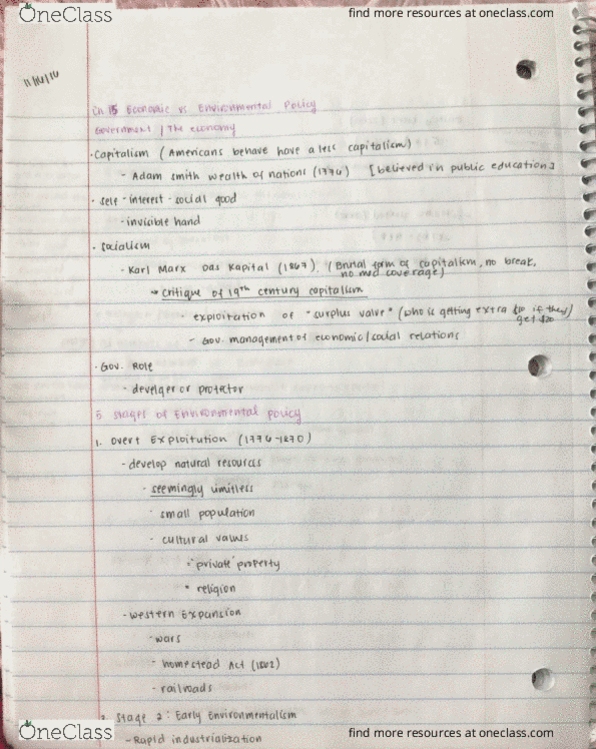 OneClass
find more resources at oneclass.com
11/16/16
Ch 15 Economic vs Environmental Policy
Government | The economy
· Capitalism ( Americans behave have a less capitalism)
- Adam smith wealth of nations (1776) [believed in public education]
· self-interest - social good
- invisible hand
· Socialism
- Karl Marx Das Kapital (1867). (Brutal form of capitalism, no break,
no med coverage)
→ critique of 19th century capitalism
exploitation of "surplus valve" (who is getting extra $10 if they
get $20)
- Gov. management of economic/social relations
· Gov. Role
· develper or protector
5 stages of Environmental policy
1. Overt Exploitution (1776-1870)
- develop natural resources
- seemingly limitless
· small population
- cultural values
"private" property
• religion
- western Expansion
- wars
- homestead Act (1862)
- railroads
2. Stage 2: Early Environmentalism
- Rapid industrialization
OneClass
find more resources at oneclass.com